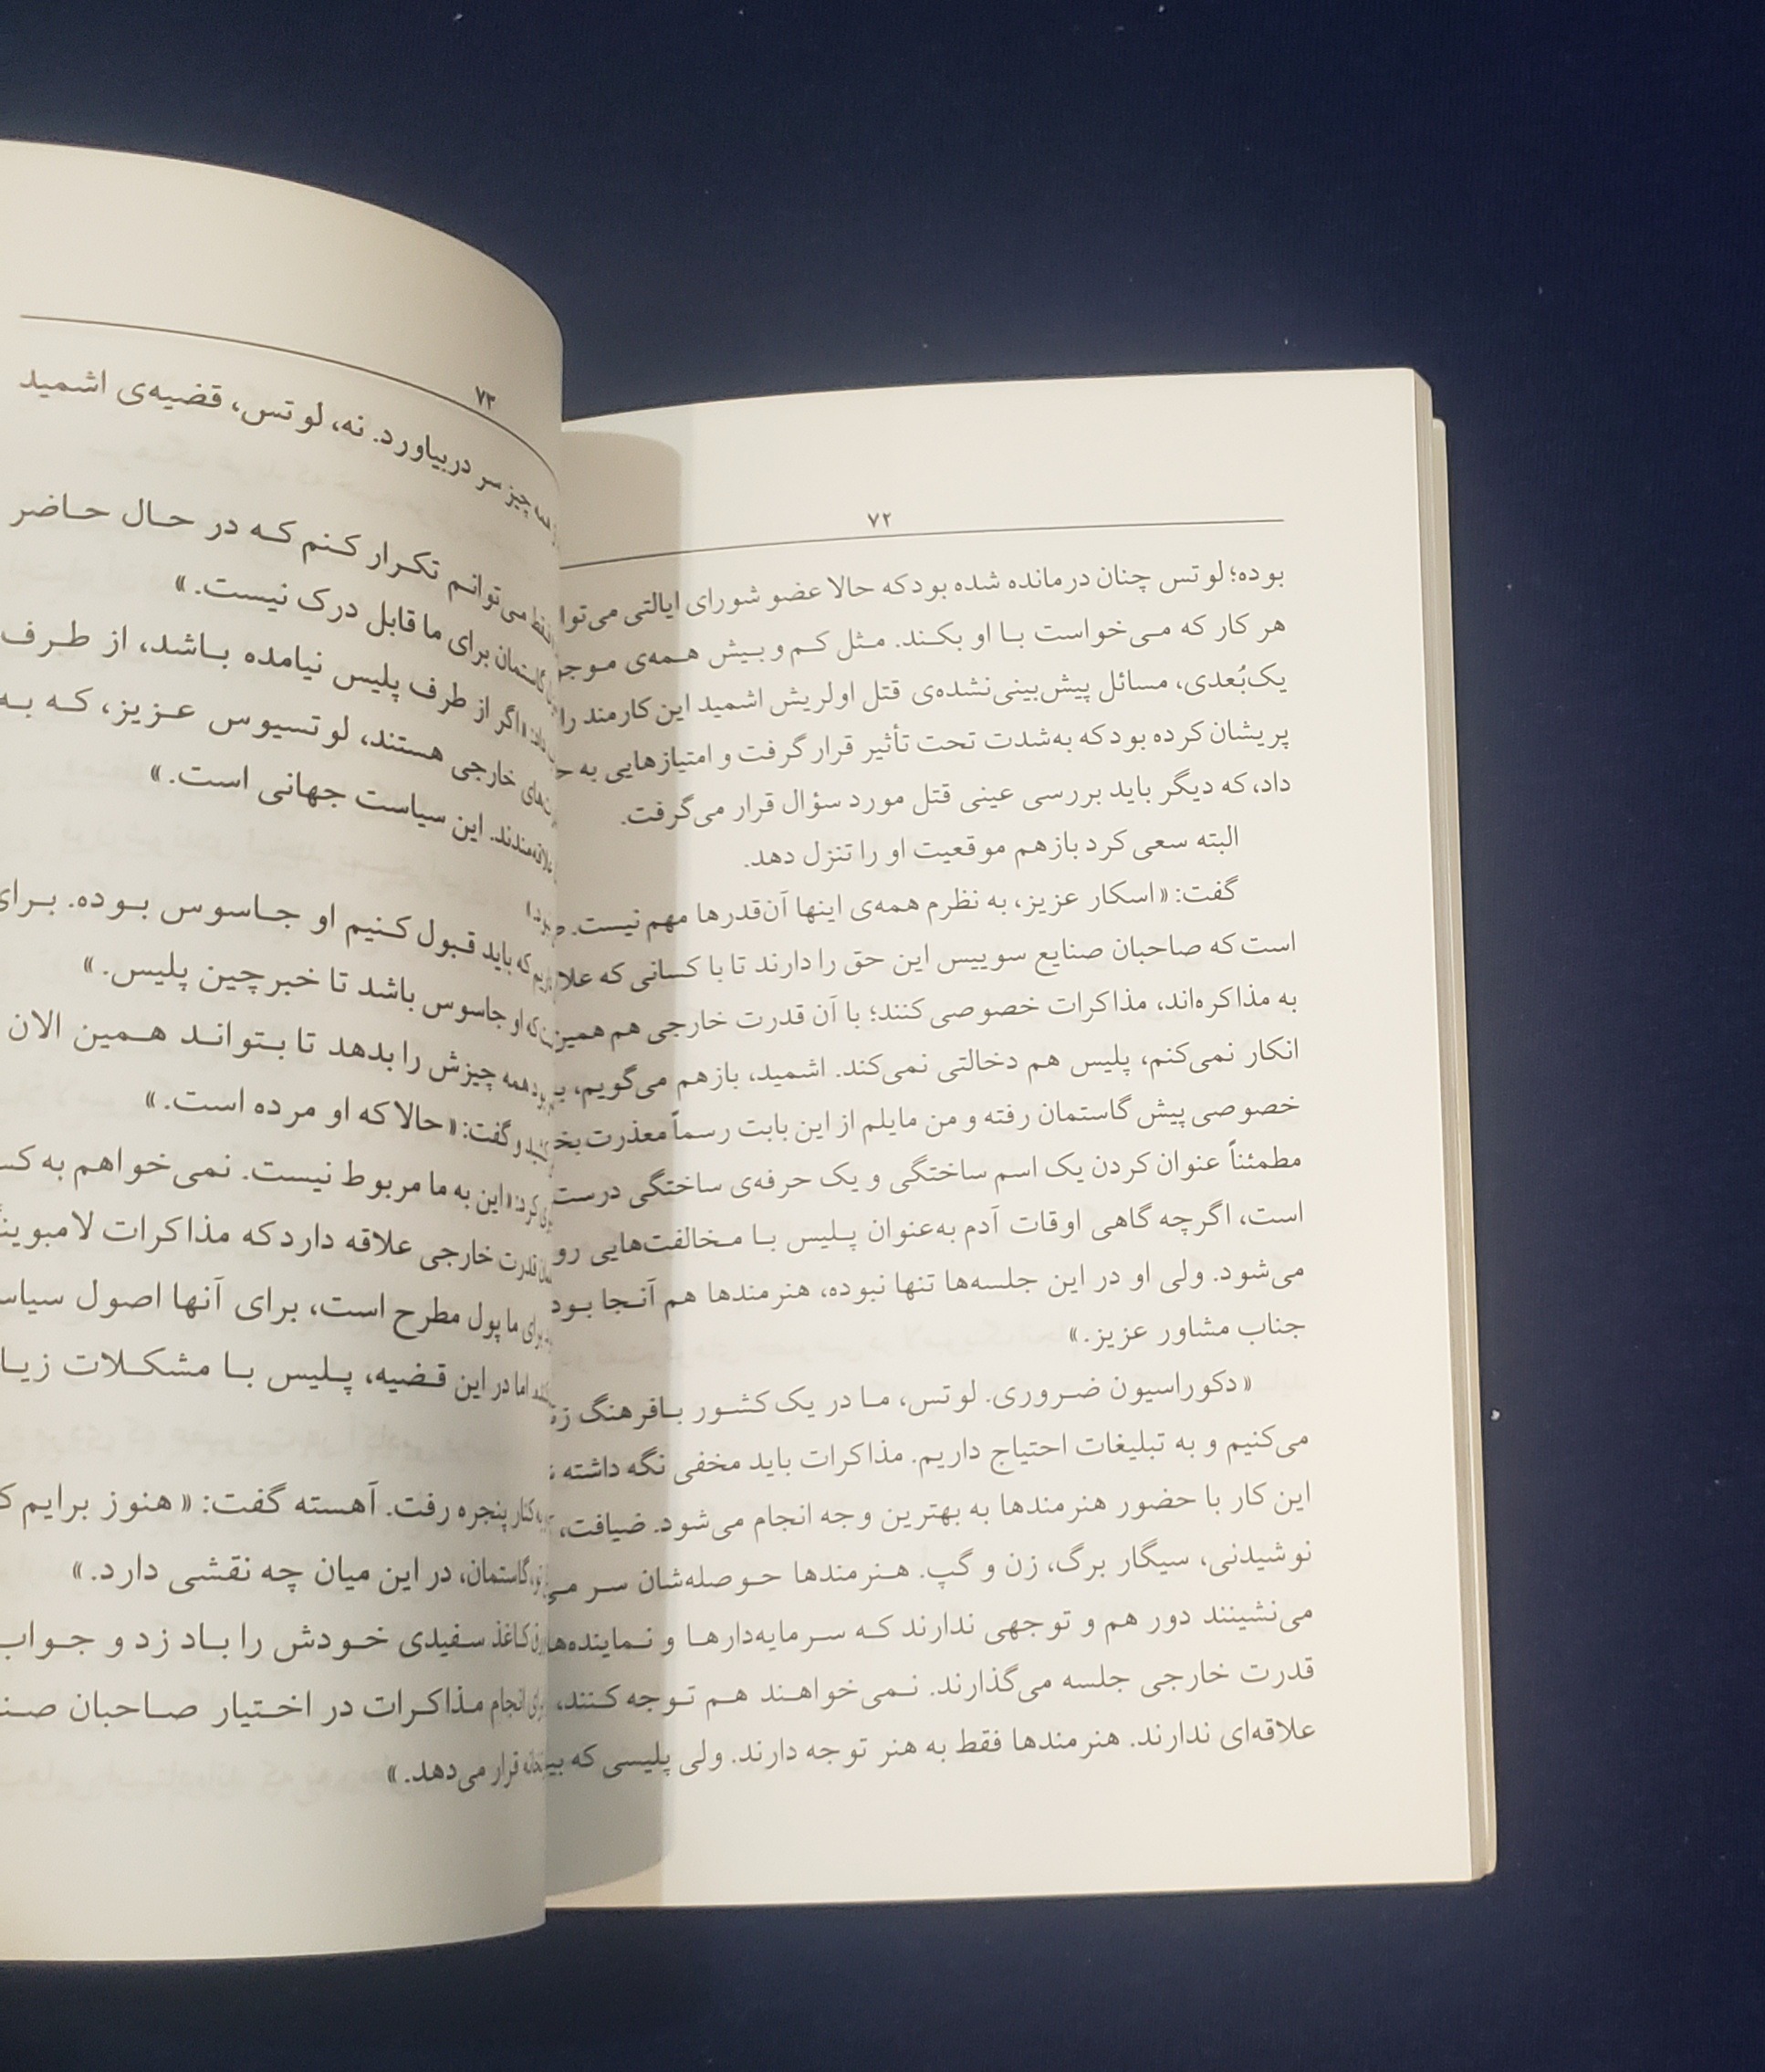 ۷۲
بوده؛ لوتس چنان درمانده شده بود که حالا عضو شورای ایالتی
هر کار که می‌خواست با او بکند. مثل کم و بیش همه‌ی
یک‌بُعدی، مسائل پیش‌بینی‌نشده‌ی قتل اولریش اشمید این کارمند را
پریشان کرده بود که به‌شدت تحت تأثیر قرار گرفت و امتیازهایی به
داد، که دیگر باید بررسی عینی قتل مورد سؤال قرار می‌گرفت.
البته سعی کرد بازهم موقعیت او را تنزل دهد.
گفت: «اسکار عزیز، به نظرم همه‌ی اینها آن‌قدرها مهم نیست.
است که صاحبان صنایع سوییس این حق را دارند تا با کسانی که
به مذاکره‌اند، مذاکرات خصوصی کنند؛ با آن قدرت خارجی هم
انکار نمی‌کنم، پلیس هم دخالتی نمی‌کند. اشمید، بازهم می‌گویم،
خصوصی پیش گاستمان رفته و من مایلم از این بابت رسماً معذرت
مطمئناً عنوان کردن یک اسم ساختگی و یک حرفه‌ی ساختگی درست
است، اگرچه گاهی اوقات آدم به‌عنوان پلیس با مخالفت‌هایی
می‌شود. ولی او در این جلسه‌ها تنها نبوده، هنرمندها هم آنجا
جناب مشاور عزیز.»
«دکوراسیون ضروری. لوتس، ما در یک کشور بافرهنگ
می‌کنیم و به تبلیغات احتیاج داریم. مذاکرات باید مخفی نگه داشته
این کار با حضور هنرمندها به بهترین وجه انجام می‌شود. ضیافت،
نوشیدنی، سیگار برگ، زن و گپ. هنرمندها حوصله‌شان سر
می‌نشینند دور هم و توجهی ندارند که سرمایه‌دارها و
قدرت خارجی جلسه می‌گذارند. نمی‌خواهند هم توجه کنند،
علاقه‌ای ندارند. هنرمندها فقط به هنر توجه دارند. ولی پلیسی که
۷۳
همه چیز سر دربیاورد. نه، لوتس، قضیه‌ی اشمید
فقط می‌توانم تکرار کنم که در حال حاضر
گاستمان برای ما قابل درک نیست.»
«اگر از طرف پلیس نیامده باشد، از طرف
خارجی هستند، لوتسیوس عزیز، که به
علاقه‌مندند. این سیاست جهانی است.»
که باید قبول کنیم او جاسوس بوده. برای
که او جاسوس باشد تا خبرچین پلیس.»
همه چیزش را بدهد تا بتواند همین الان
و گفت: «حالا که او مرده است.»
کرد: «این به ما مربوط نیست. نمی‌خواهم به
قدرت خارجی علاقه دارد که مذاکرات
برای ما پول مطرح است، برای آنها اصول
اما در این قضیه، پلیس با مشکلات
کنار پنجره رفت. آهسته گفت: «هنوز برایم
گاستمان، در این میان چه نقشی دارد.»
کاغذ سفیدی خودش را باد زد و جواب
انجام مذاکرات در اختیار صاحبان
قرار می‌دهد.»